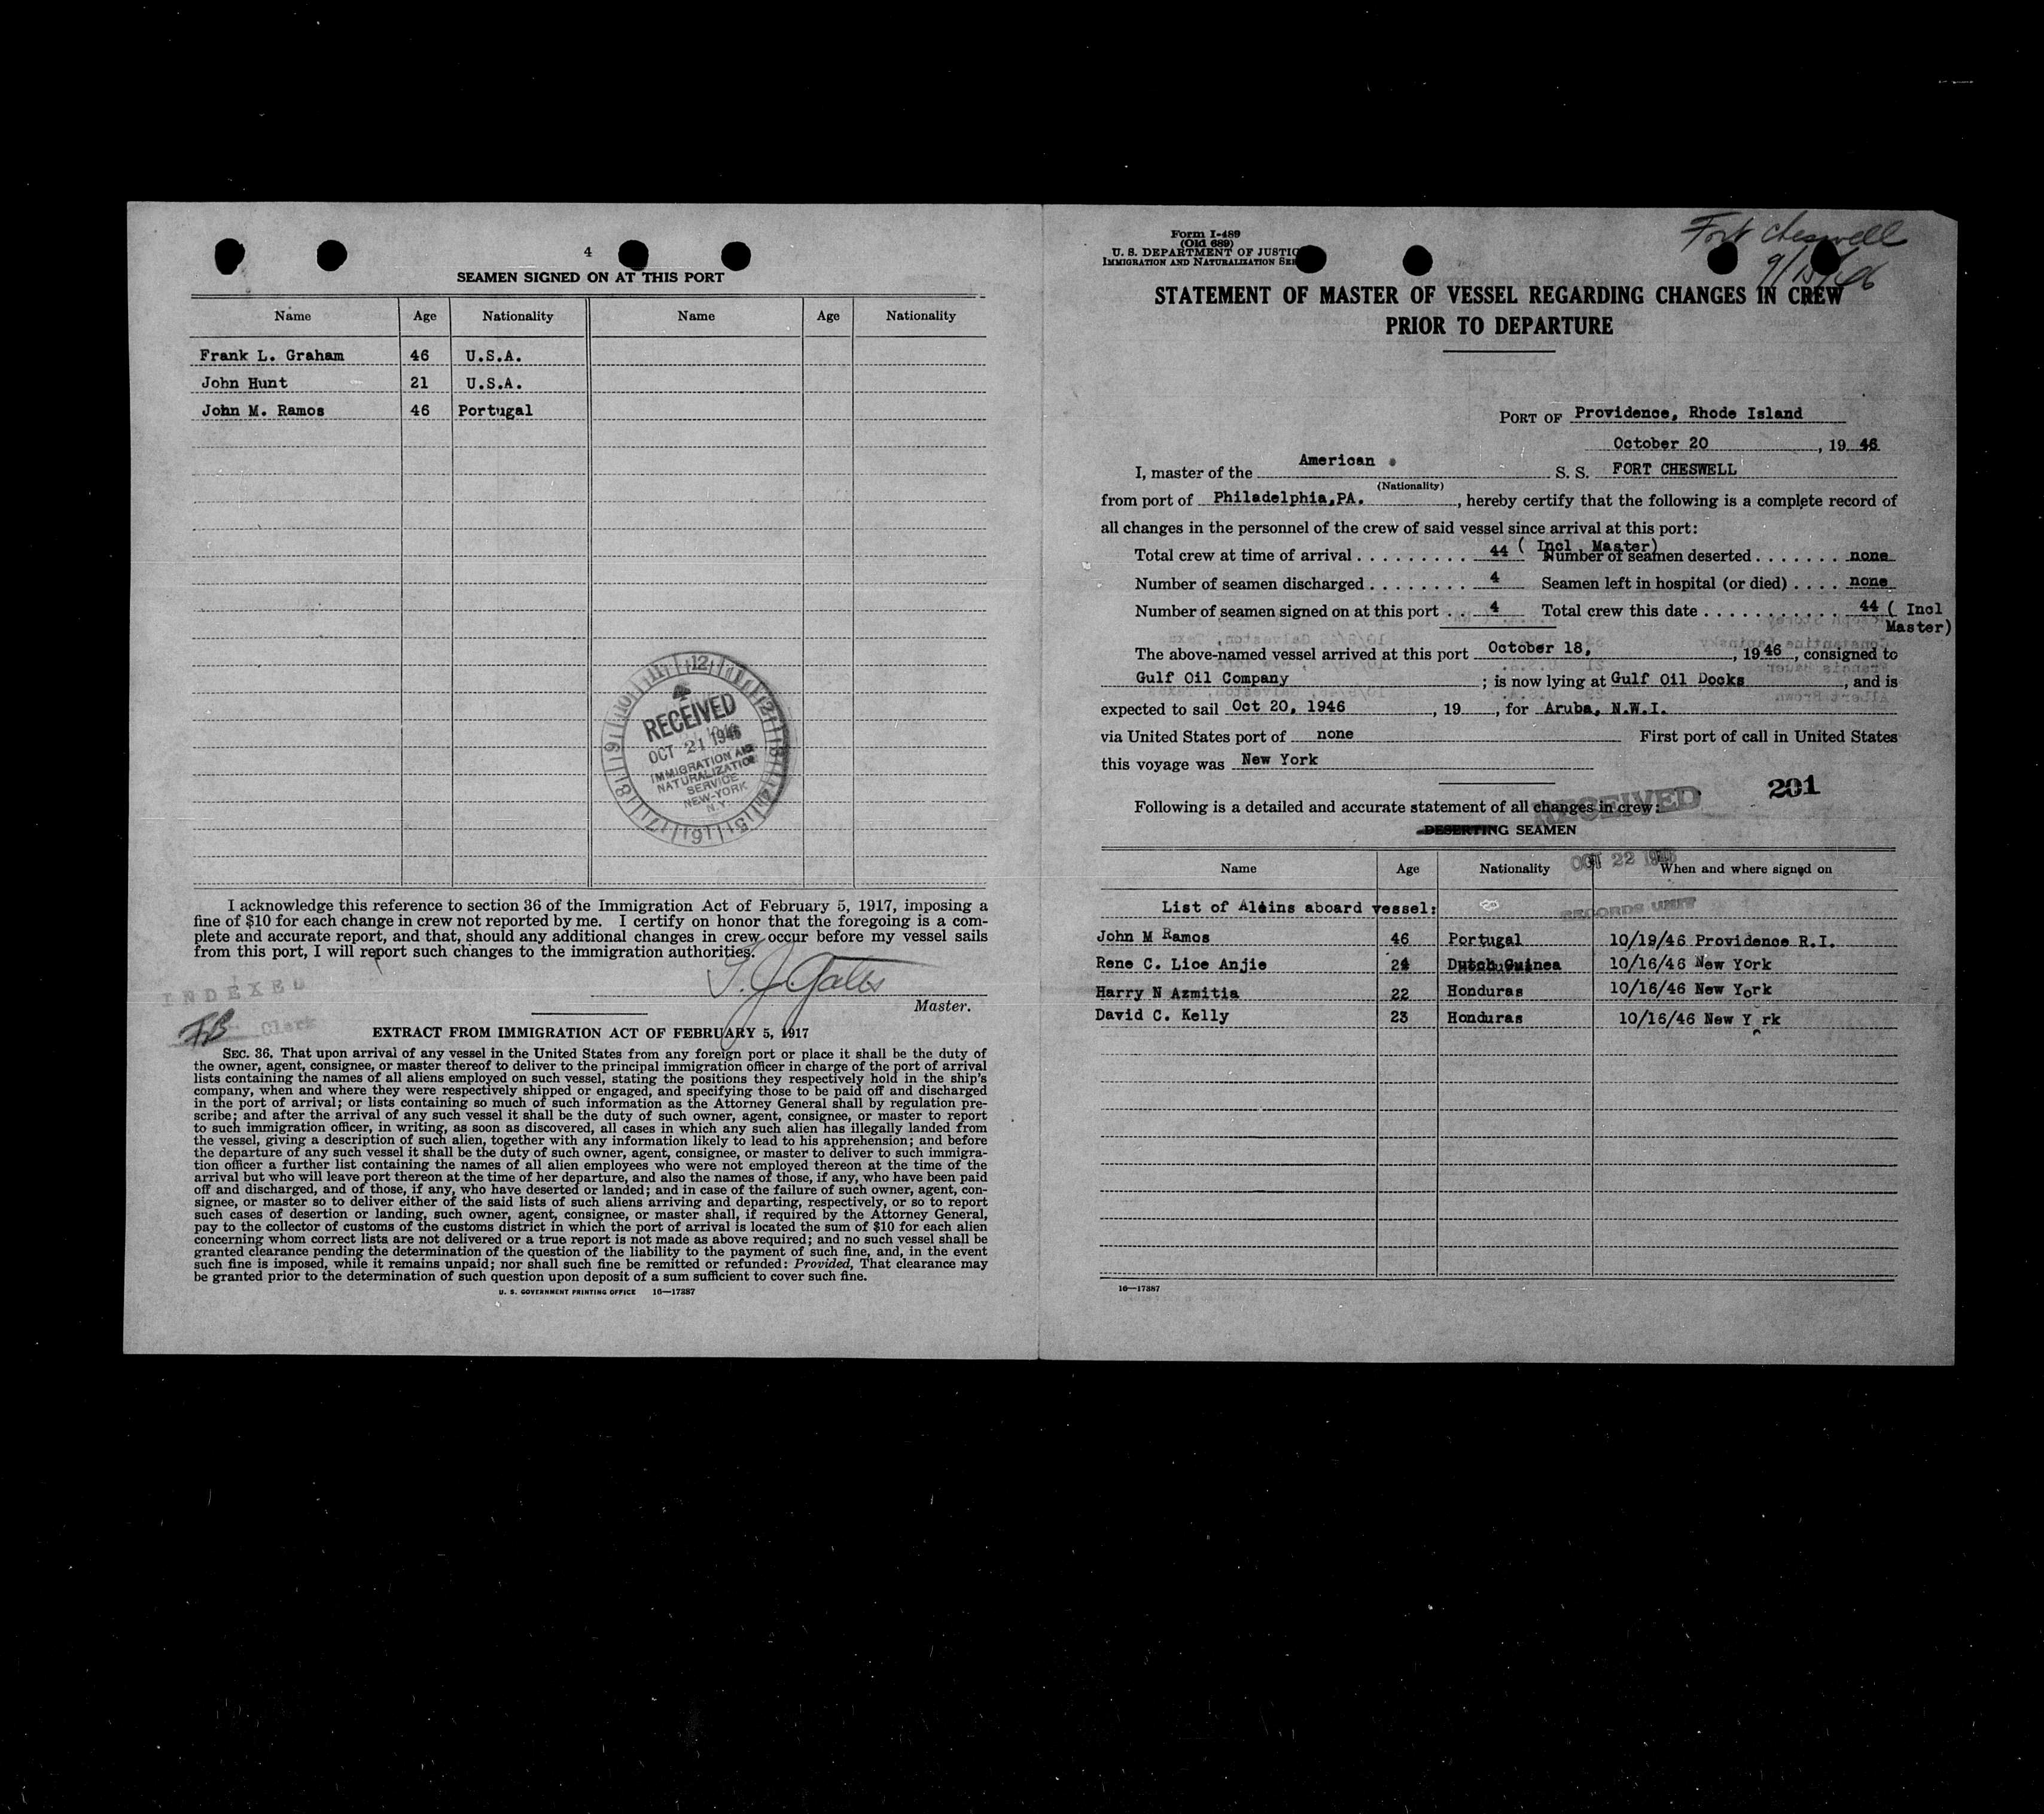 4
SEAMEN SIGNED ON AT THIS PORT
Name Age Nationality Name Age Nationality
Frank L. Graham 46 U.S.A.
John Hunt 21 U.S.A.
John M. Ramos 46 Portugal
12 1 2 3 4 5 6 7 8 9 10 11
RECEIVED
OCT 21 1946
IMMIGRATION AND
NATURALIZATION
SERVICE
NEW-YORK
N.Y.
I acknowledge this reference to section 36 of the Immigration Act of February 5, 1917, imposing a
fine of $10 for each change in crew not reported by me. I certify on honor that the foregoing is a com-
plete and accurate report, and that, should any additional changes in crew occur before my vessel sails
from this port, I will report such changes to the immigration authorities.
Gates
Master.
INDEXED
Clerk
EXTRACT FROM IMMIGRATION ACT OF FEBRUARY 5, 1917
SEC. 36. That upon arrival of any vessel in the United States from any foreign port or place it shall be the duty of
the owner, agent, consignee, or master thereof to deliver to the principal immigration officer in charge of the port of arrival
lists containing the names of all aliens employed on such vessel, stating the positions they respectively hold in the ship's
company, when and where they were respectively shipped or engaged, and specifying those to be paid off and discharged
in the port of arrival; or lists containing so much of such information as the Attorney General shall by regulation pre-
scribe; and after the arrival of any such vessel it shall be the duty of such owner, agent, consignee, or master to report
to such immigration officer, in writing, as soon as discovered, all cases in which any such alien has illegally landed from
the vessel, giving a description of such alien, together with any information likely to lead to his apprehension; and before
the departure of any such vessel it shall be the duty of such owner, agent, consignee, or master to deliver to such immigra-
tion officer a further list containing the names of all alien employees who were not employed thereon at the time of the
arrival but who will leave port thereon at the time of her departure, and also the names of those, if any, who have been paid
off and discharged, and of those, if any, who have deserted or landed; and in case of the failure of such owner, agent, con-
signee, or master so to deliver either of the said lists of such aliens arriving and departing, respectively, or so to report
such cases of desertion or landing, such owner, agent, consignee, or master shall, if required by the Attorney General,
pay to the collector of customs of the customs district in which the port of arrival is located the sum of $10 for each alien
concerning whom correct lists are not delivered or a true report is not made as above required; and no such vessel shall be
granted clearance pending the determination of the question of the liability to the payment of such fine, and, in the event
such fine is imposed, while it remains unpaid; nor shall such fine be remitted or refunded: Provided, That clearance may
be granted prior to the determination of such question upon deposit of a sum sufficient to cover such fine.
U. S. GOVERNMENT PRINTING OFFICE 16—17387
Form I-489
(Old 689)
U. S. DEPARTMENT OF JUSTIC
IMMIGRATION AND NATURALIZATION SER
Fort Cheswell
STATEMENT OF MASTER OF VESSEL REGARDING CHANGES IN CREW
PRIOR TO DEPARTURE
PORT OF Providence, Rhode Island
October 20, 1946
I, master of the American S. S. FORT CHESWELL
(Nationality)
from port of Philadelphia,PA., hereby certify that the following is a complete record of
all changes in the personnel of the crew of said vessel since arrival at this port:
Total crew at time of arrival . . . . . . . . . . 44 ( Incl Master) Number of seamen deserted . . . . . . . none
Number of seamen discharged . . . . . . . . 4 Seamen left in hospital (or died) . . . . none
Number of seamen signed on at this port . . 4 Total crew this date . . . . . . . . . . . 44 ( Incl
Master)
The above-named vessel arrived at this port October 18, , 1946, consigned to
Gulf Oil Company ; is now lying at Gulf Oil Docks, and is
expected to sail Oct 20, 1946, 19 , for Aruba, N.W.I.
via United States port of none First port of call in United States
this voyage was New York
201
Following is a detailed and accurate statement of all changes in crew:
RECEIVED
DESERTING SEAMEN
OCT 22 1946
Name Age Nationality When and where signed on
RECORDS UNIT
List of Aleins aboard vessel:
John M Ramos 46 Portugal 10/19/46 Providence R.I.
Rene C. Lioe Anjie 24 Dutch Guinea 10/16/46 New York
Harry N Azmitia 22 Honduras 10/16/46 New York
David C. Kelly 23 Honduras 10/16/46 New Y rk
16—17387